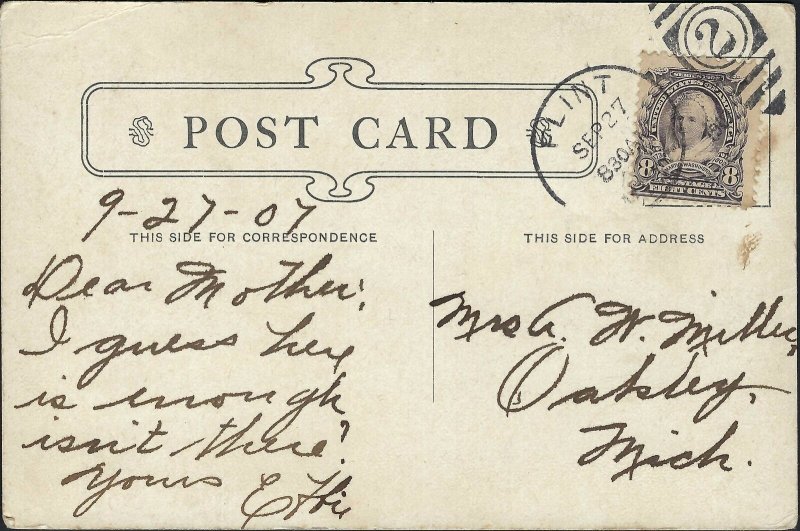 POST CARD
FLINT
SEP 27
830AM
2
SERIES 1902
UNITED STATES OF AMERICA
8 8
POSTAGE
EIGHT CENTS
9-27-07
THIS SIDE FOR CORRESPONDENCE
Dear Mother,
I guess here
is enough
isn't there?
Yours
THIS SIDE FOR ADDRESS
Mrs A. W. Miller,
Oakley,
Mich.